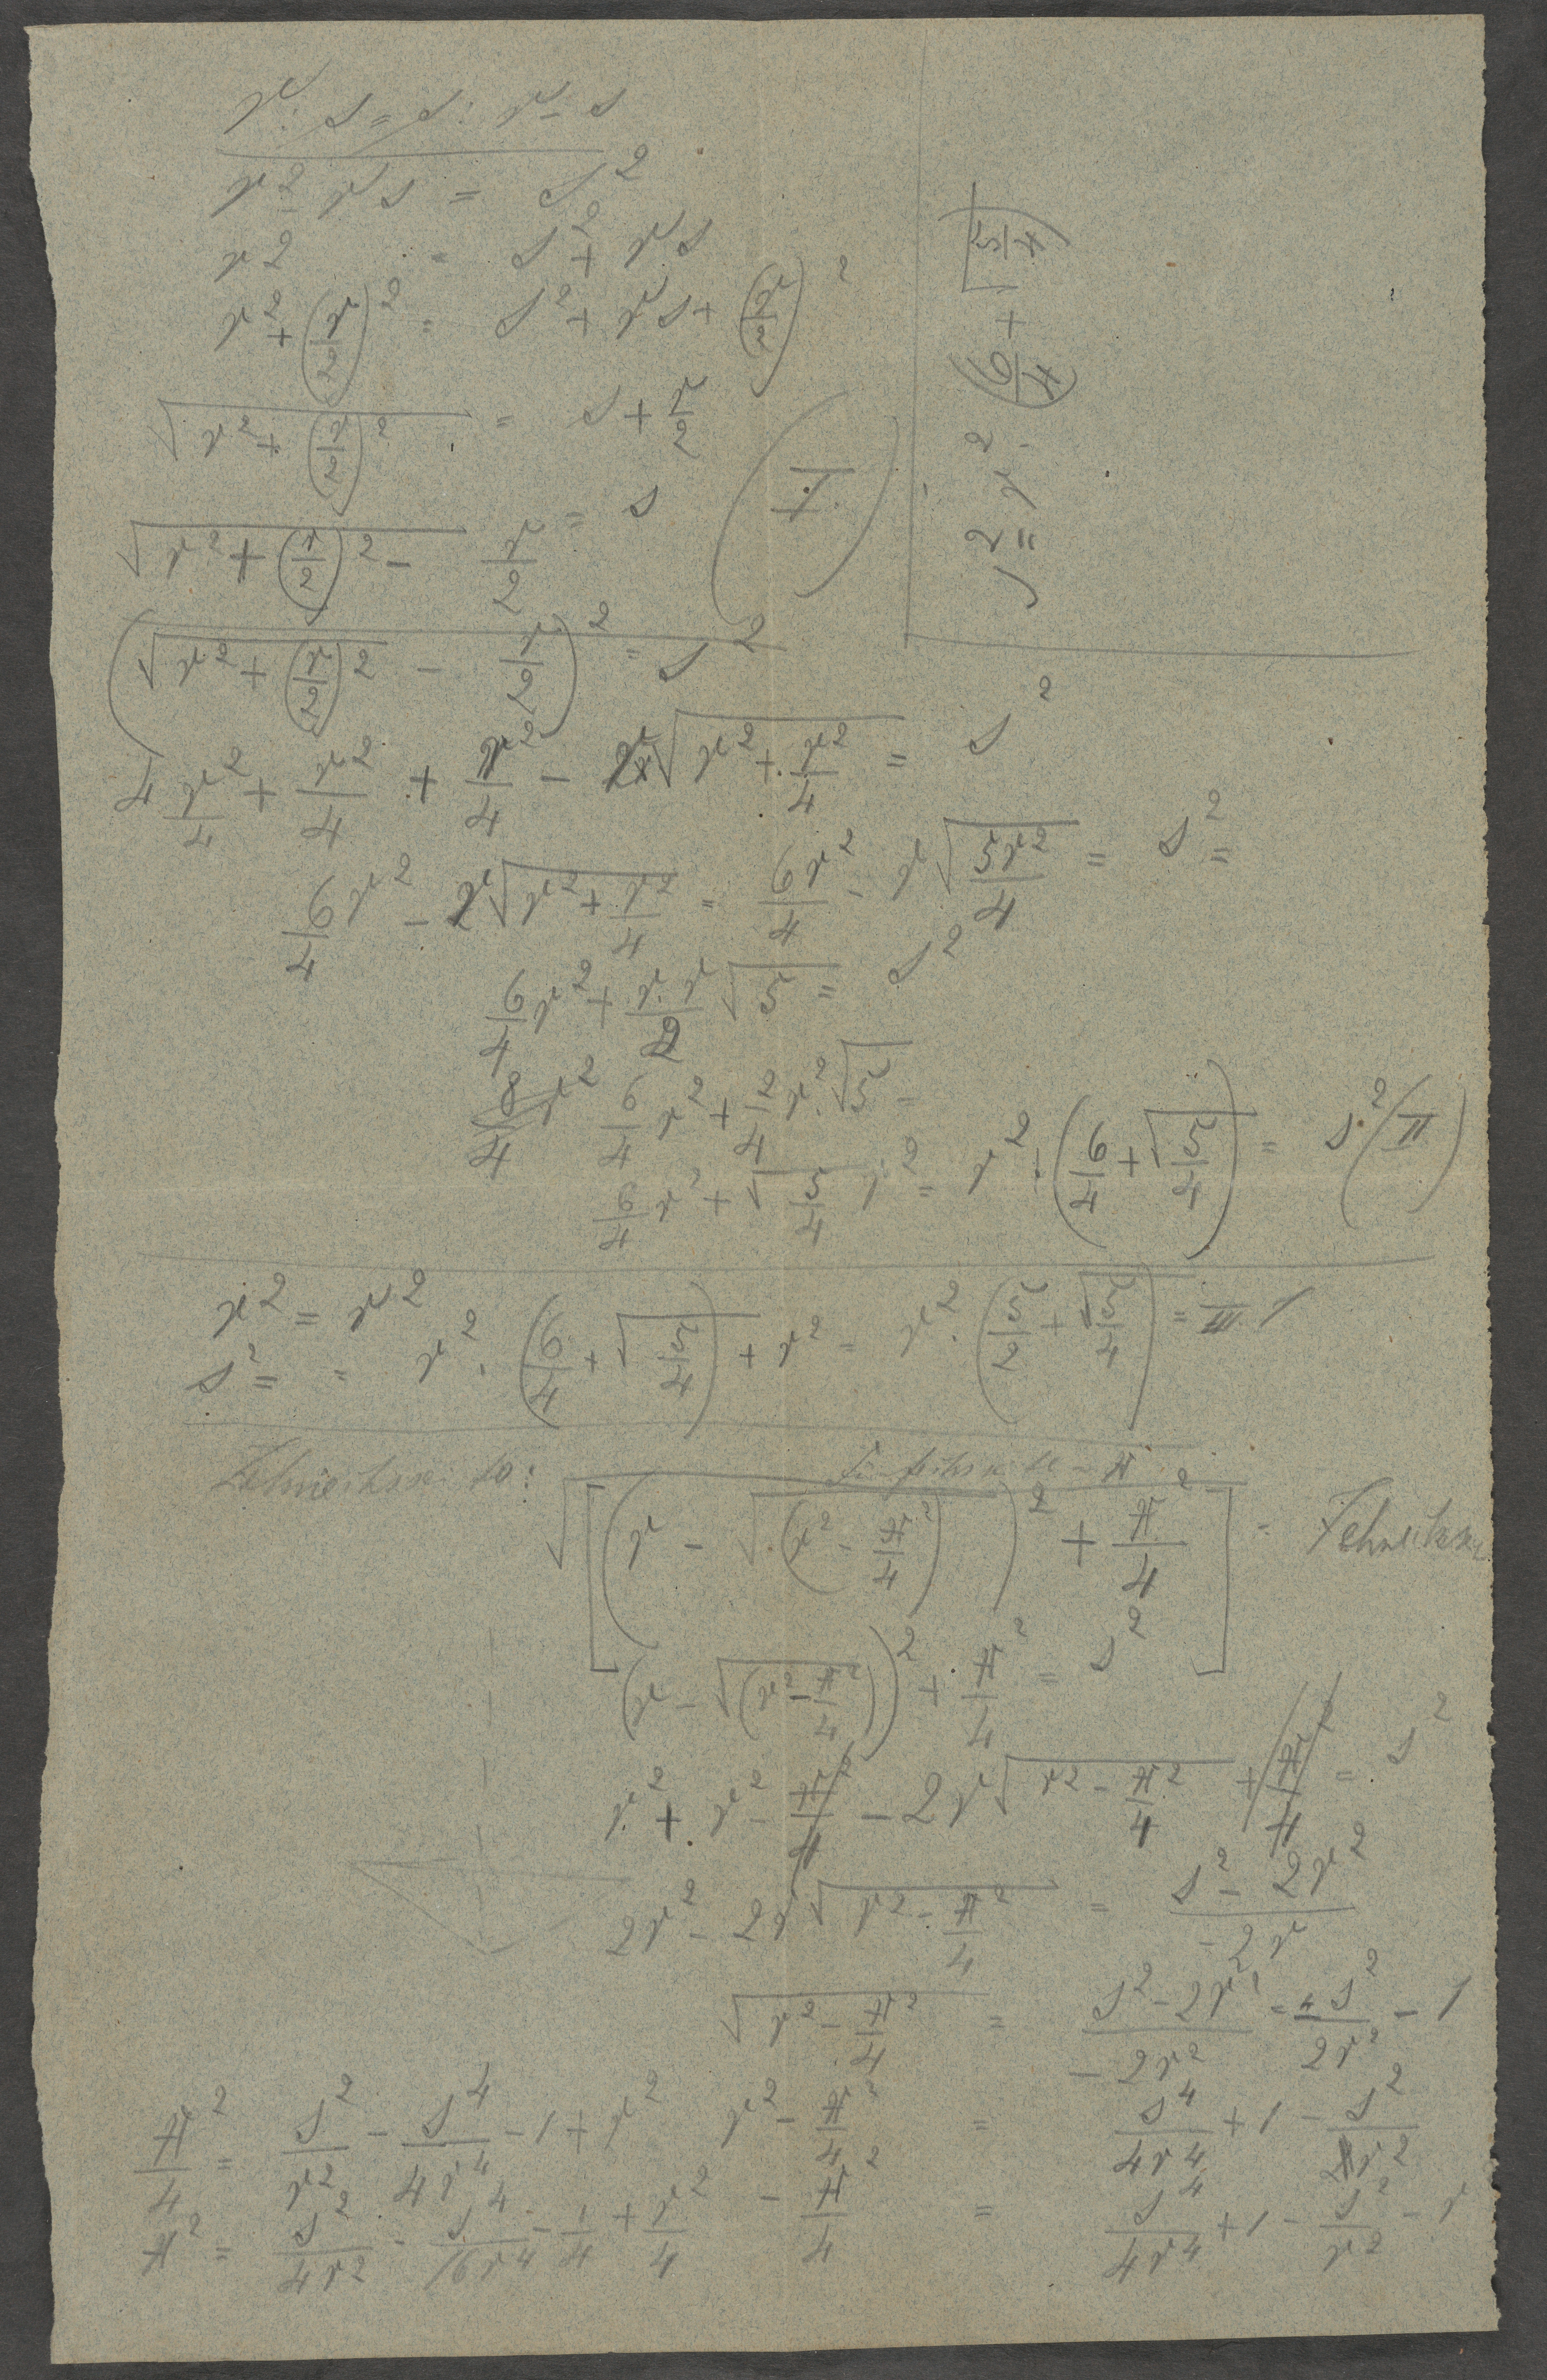 r : s = s : r - s
r² - rs = s²
r² = s² + rs
r² + (r/2)² = s² + rs + (r/2)²
√(r² + (r/2)²) = s + r/2
√(r² + (r/2)²) - r/2 = s (I.)
(√(r² + (r/2)²) - r/2)² = s²
4 r²/4 + r²/4 + r²/4 - r√(r² + r²/4) = s²
6/4 r² - r√(r² + r²/4) = 6r²/4 - r√(5r²/4) = s² =
6/4 r² + r·r/2 √5 = s²
8/4 r² 6/4 r² + 2/4 r²·√5 =
6/4 r² + √(5/4) r² = r² · (6/4 + √(5/4)) = s² (II)
r² = r²
s² = = r² · (6/4 + √(5/4)) + r² = r² · (5/2 + √(5/4)) = III
√[(r - √(r² - π²/4))² + π²/4] =
(r - √(r² - π²/4))² + π²/4 = s²
r² + r² - π²/4 - 2r√(r² - π²/4) + π²/4 = s²
2r² - 2r√(r² - π²/4) = (s² - 2r²)/(-2r)
√(r² - π²/4) = (s² - 2r²)/(-2r²) = s²/2r² - 1
π²/4 = s²/r² - s⁴/4r⁴ - 1 + r² r² - π²/4 = s⁴/4r⁴ + 1 - s²/r²
π² = s²/4r² - s⁴/16r⁴ - 1/4 + r²/4 - π²/4 = s⁴/4r⁴ + 1 - s²/r² - r